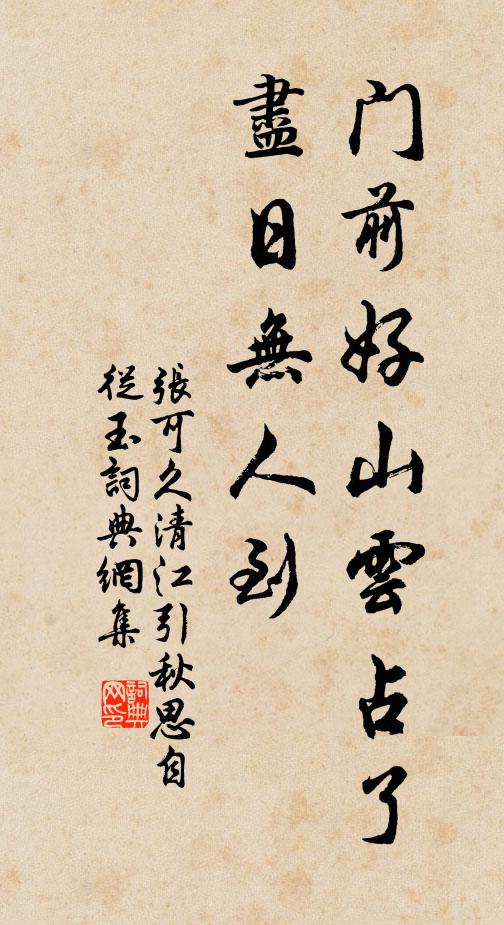 门前好山雲占了
盡日無人到
張可久清江引秋思自
從玉詞典網集
詞典
网印